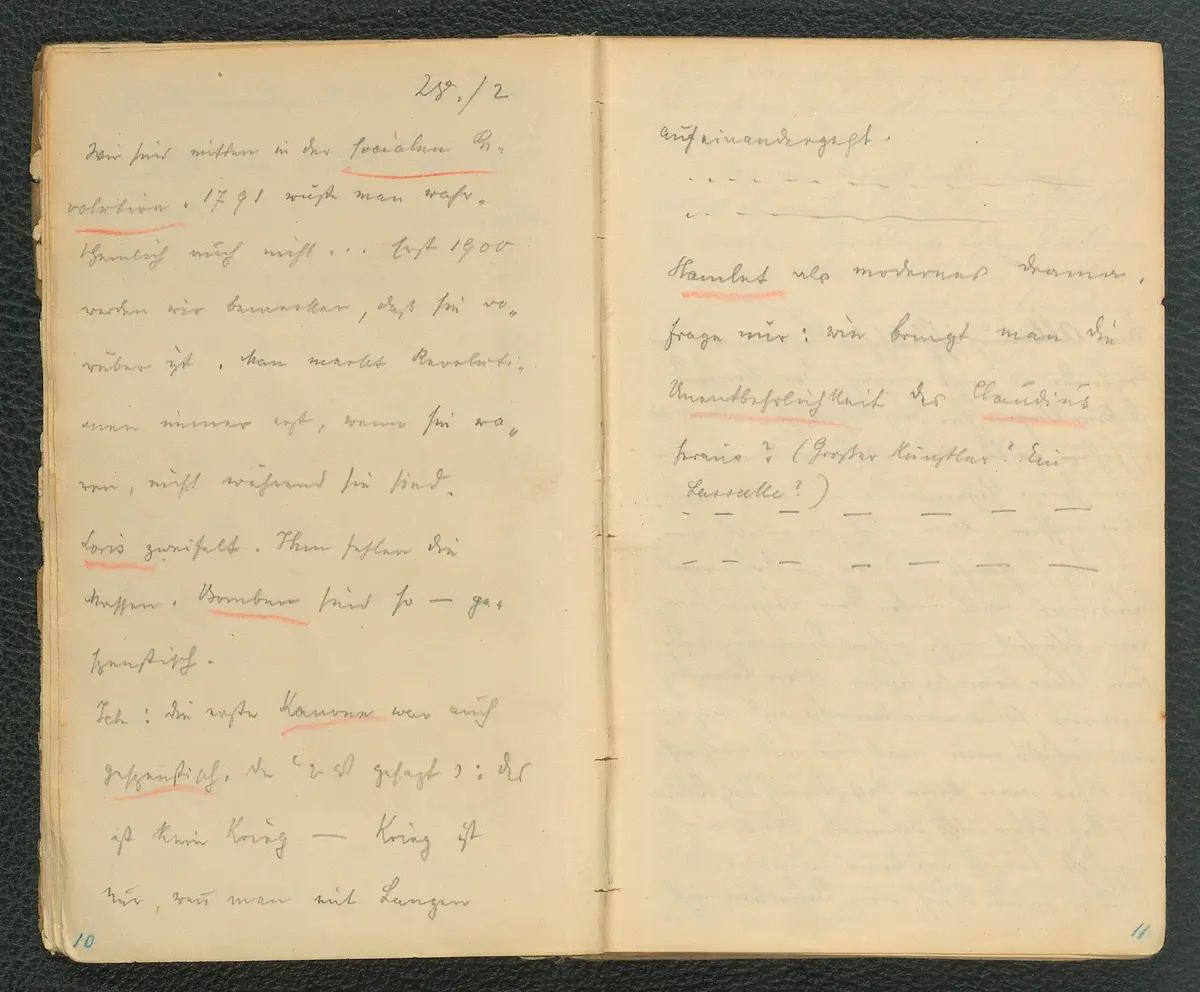 28./2
Wir sind mitten in der socialen Re-
volution. 1791 wußte man wahr-
scheinlich auch nicht... Erst 1900
werden wir bemerken, daß sie vo-
rüber ist. Man merkt Revoluti-
onen immer erst, wenn sie wa-
ren, nicht während sie sind.
Loris zweifelt. Ihm fehlen die
Massen. Bomben sind so — ge-
spenstisch.
Ich: die erste Kanone war auch
gespenstisch. Da gesagt: das
ist kein Krieg — Krieg ist
nur, wenn man mit Lanzen
10
aufeinandergeht.
Hamlet als modernes Drama.
Frage nur: wie bringt man die
Unentbehrlichkeit des Claudius
heraus? (Großer Künstler? Ein
Lassalle?)
11